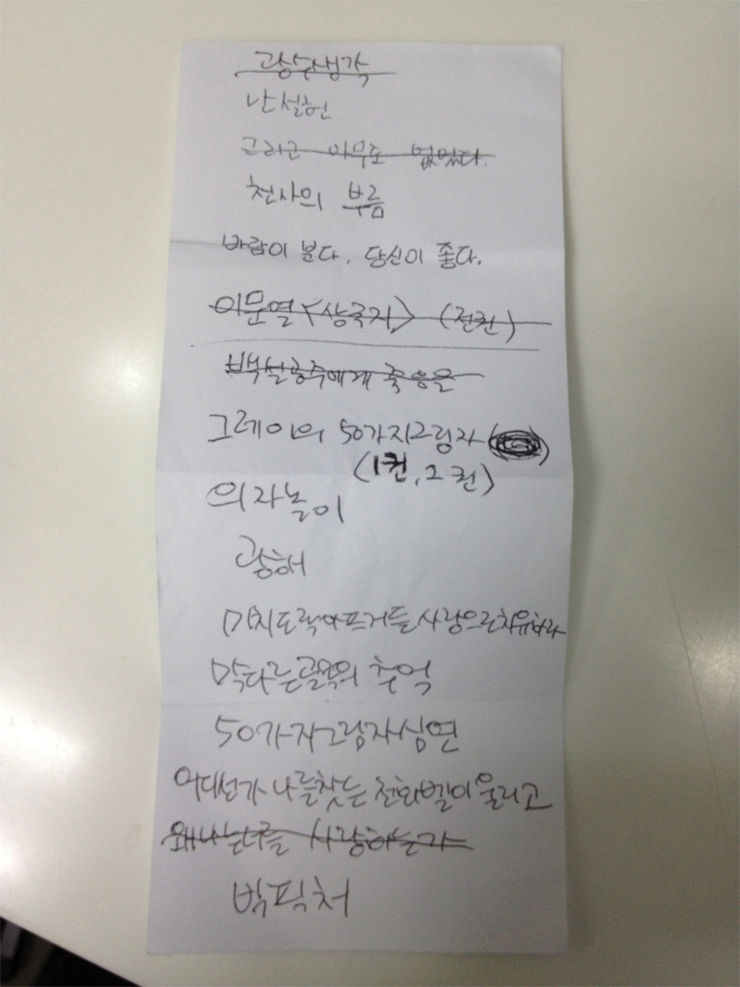 광수생각
난설헌
그리고 아무도 없었다.
천사의 부름
바람이 분다, 당신이 좋다.
이문열<삼국지> (전권)
백설공주에게 죽음을
그레이의 50가지그림자
(1권, 2권)
의자놀이
광해
미치도록아프거든사랑으로치유하라
막다른골목의 추억
50가지그림자심연
어디선가 나를찾는 전화벨이 울리고
왜나는너를 사랑하는가
빅픽처